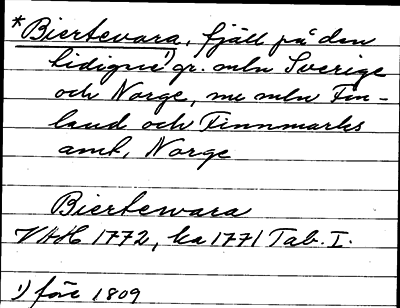 *Biertevara, fjäll på den
tidigare¹) gr. mln Sverige
och Norge, nu mln Fin-
land och Finnmarks
amt, Norge
Biertewara
VAH 1772, ka 1771 Tab. I.
¹) före 1809